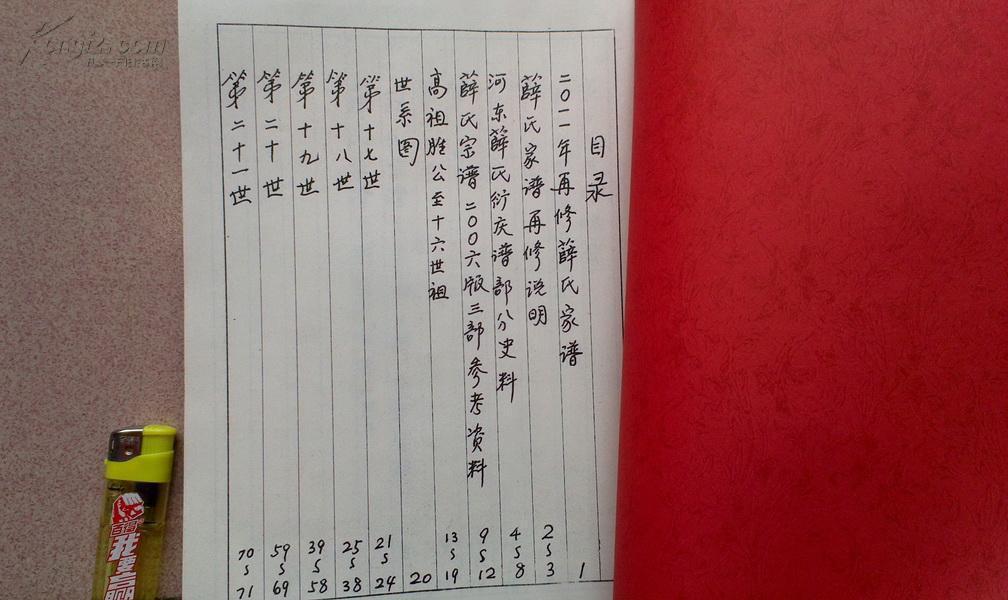 目录
二〇一一年再修薛氏家谱 1
薛氏家谱再修说明 2~3
河东薛氏衍庆谱部分史料 4~8
薛氏宗谱二〇〇六版三部参考资料 9~12
高祖胜公至十六世祖 13~19
世系图 20
第十七世 21~24
第十八世 25~38
第十九世 39~58
第二十世 59~69
第二十一世 70~71
我要赢